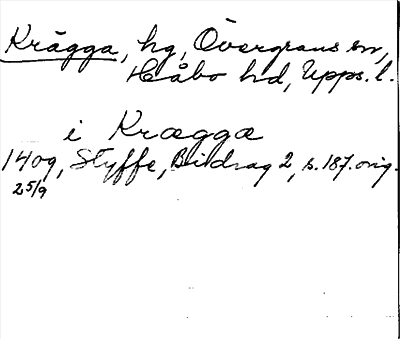 Krägga, hg, Övergrans sn,
Håbo hd, Upps. l.
i Krægga
1409, Styffe, Bidrag 2, s. 187. orig.
25/9